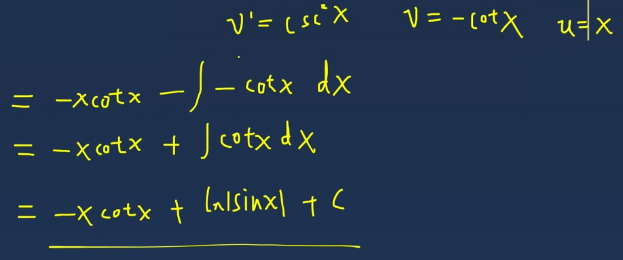 v' = csc²x v = -cotx u=x
= -xcotx - ∫ - cotx dx
= -xcotx + ∫cotx dx
= -xcotx + ln|sinx| + C